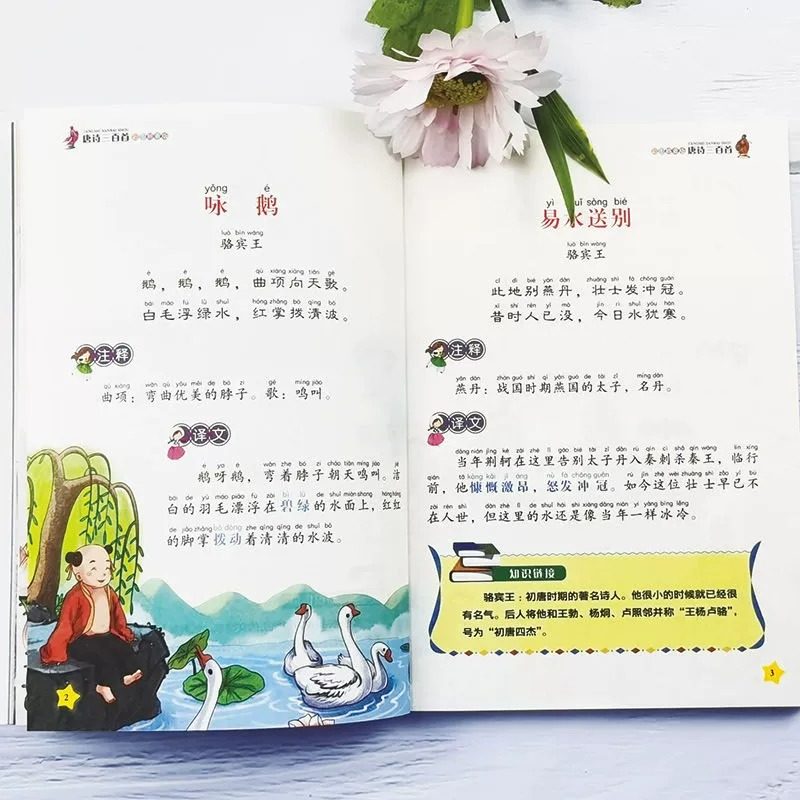 唐诗三百首
yǒng é
咏 鹅
luò bīn wáng
骆宾王
é é é qū xiàng xiàng tiān gē
鹅，鹅，鹅，曲项向天歌。
bái máo fú lǜ shuǐ hóng zhǎng bō qīng bō
白毛浮绿水，红掌拨清波。
注释
qū xiàng wān qū yōu měi de bó zi gē míng jiào
曲项：弯曲优美的脖子。歌：鸣叫。
译文
é ya é wān zhe bó zi cháo tiān míng jiào
鹅呀鹅，弯着脖子朝天鸣叫。洁
bái de yǔ máo piāo fú zài bì lǜ de shuǐ miàn shang hóng hóng
白的羽毛漂浮在碧绿的水面上，红红
de jiǎo zhǎng bō dòng zhe qīng qīng de shuǐ bō
的脚掌拨动着清清的水波。
2
唐诗三百首
yì shuǐ sòng bié
易水送别
luò bīn wáng
骆宾王
cǐ dì bié yān dān zhuàng shì fà chōng guān
此地别燕丹，壮士发冲冠。
xī shí rén yǐ mò jīn rì shuǐ yóu hán
昔时人已没，今日水犹寒。
注释
yān dān zhàn guó shí qī yān guó de tài zǐ míng dān
燕丹：战国时期燕国的太子，名丹。
译文
dāng nián jīng kē zài zhè lǐ gào bié tài zǐ dān rù qín cì shā qín wáng lín xíng
当年荆轲在这里告别太子丹入秦刺杀秦王，临行
qián tā kāng kǎi jī áng nù fà chōng guān rú jīn zhè wèi zhuàng shì zǎo yǐ bú
前，他慷慨激昂，怒发冲冠。如今这位壮士早已不
zài rén shì dàn zhè lǐ de shuǐ hái shi xiàng dāng nián yí yàng bīng lěng
在人世，但这里的水还是像当年一样冰冷。
知识链接
骆宾王：初唐时期的著名诗人。他很小的时候就已经很
有名气。后人将他和王勃、杨炯、卢照邻并称“王杨卢骆”，
号为“初唐四杰”。
3